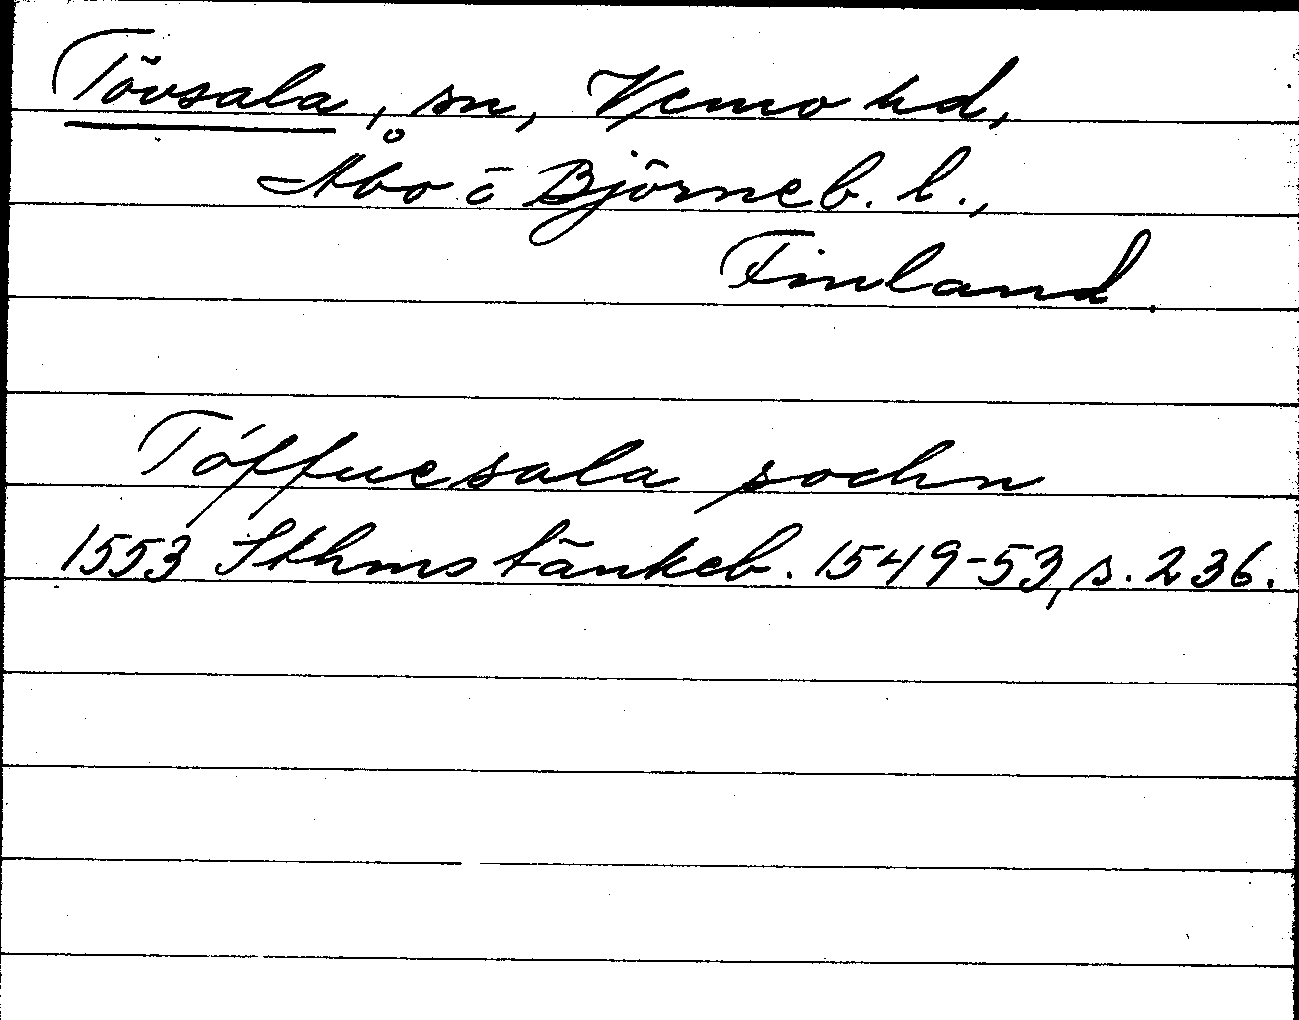 Tövsala, sn, Vemo hd,
Åbo o Björneb. l.,
Finland.
Tóffuesala sochn
1553 Sthms tänkeb. 1549-53, s. 236.